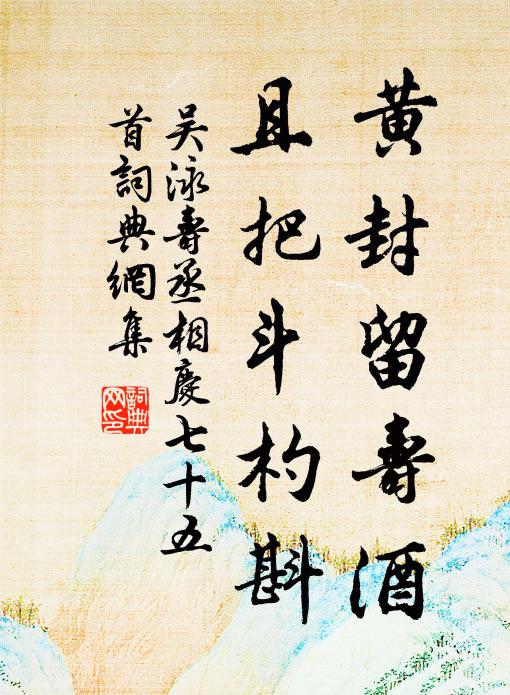 黄封留壽酒
且把斗杓斟
吳泳壽丞相慶七十五
首詞典網集
詞典
网印